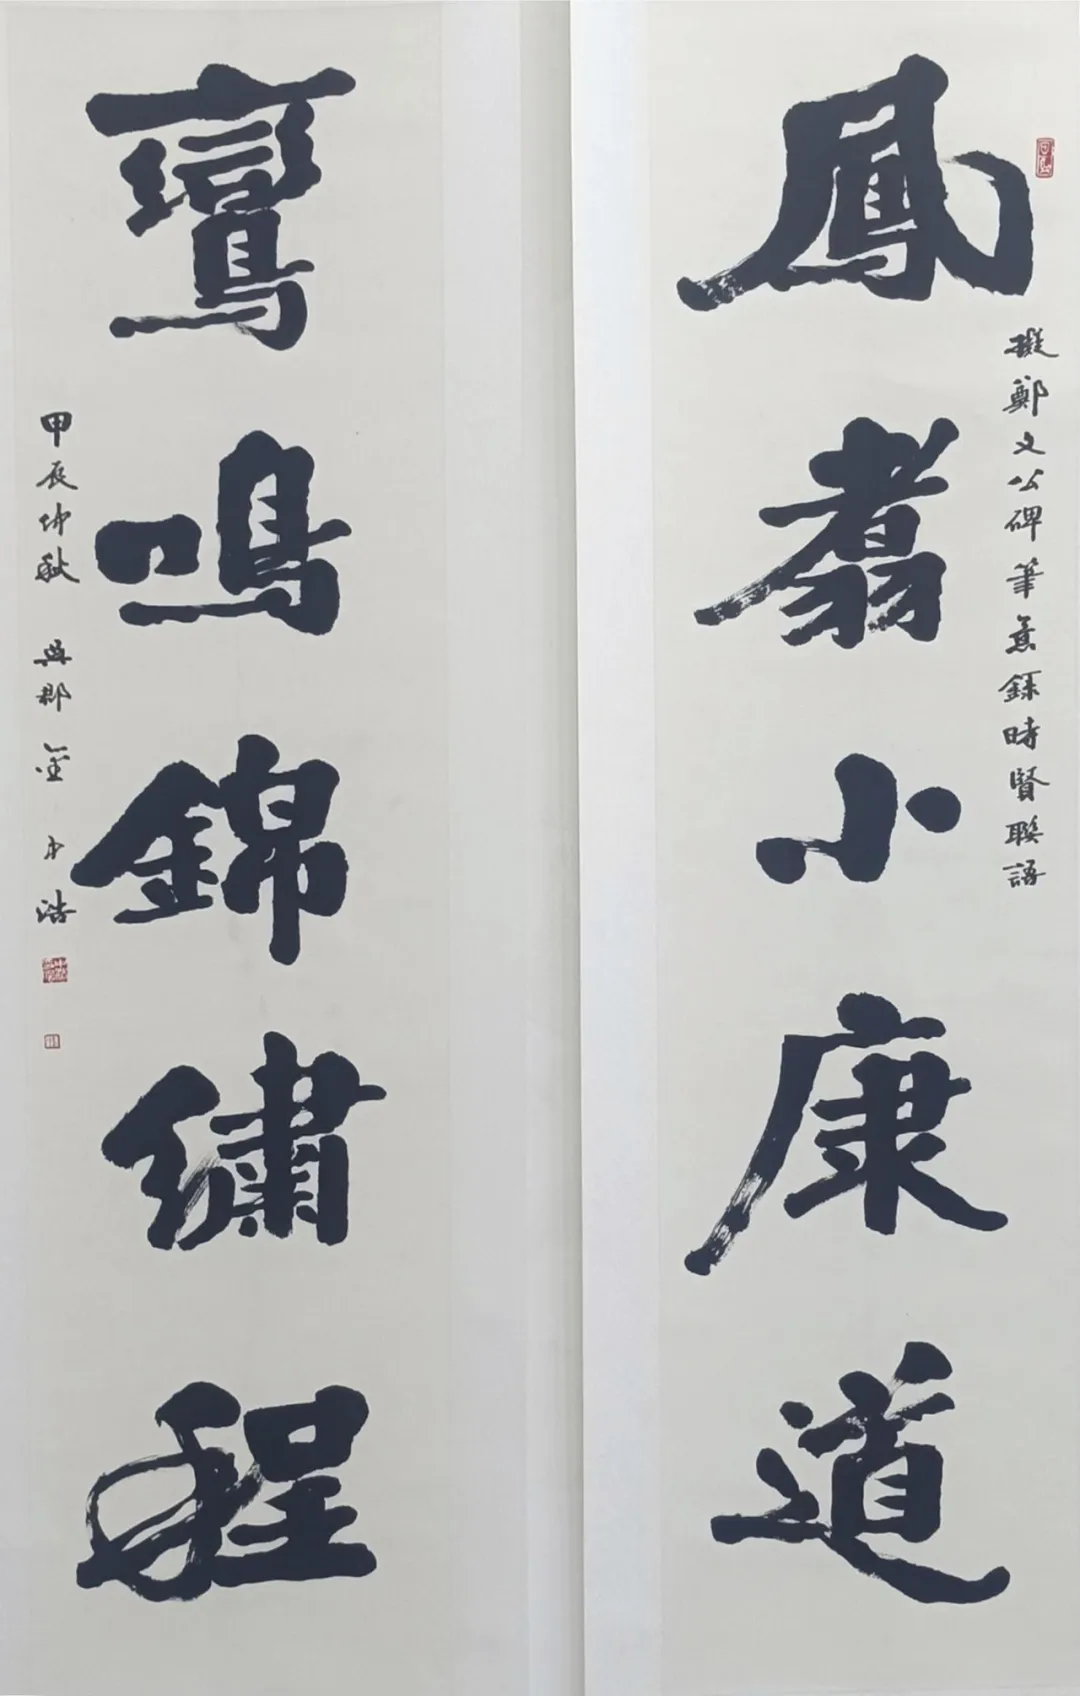 鳳翥小康道
擬鄭文公碑筆意錄時賢聯語
鸞鳴錦繡程
甲辰仲秋 吳郡金小浩